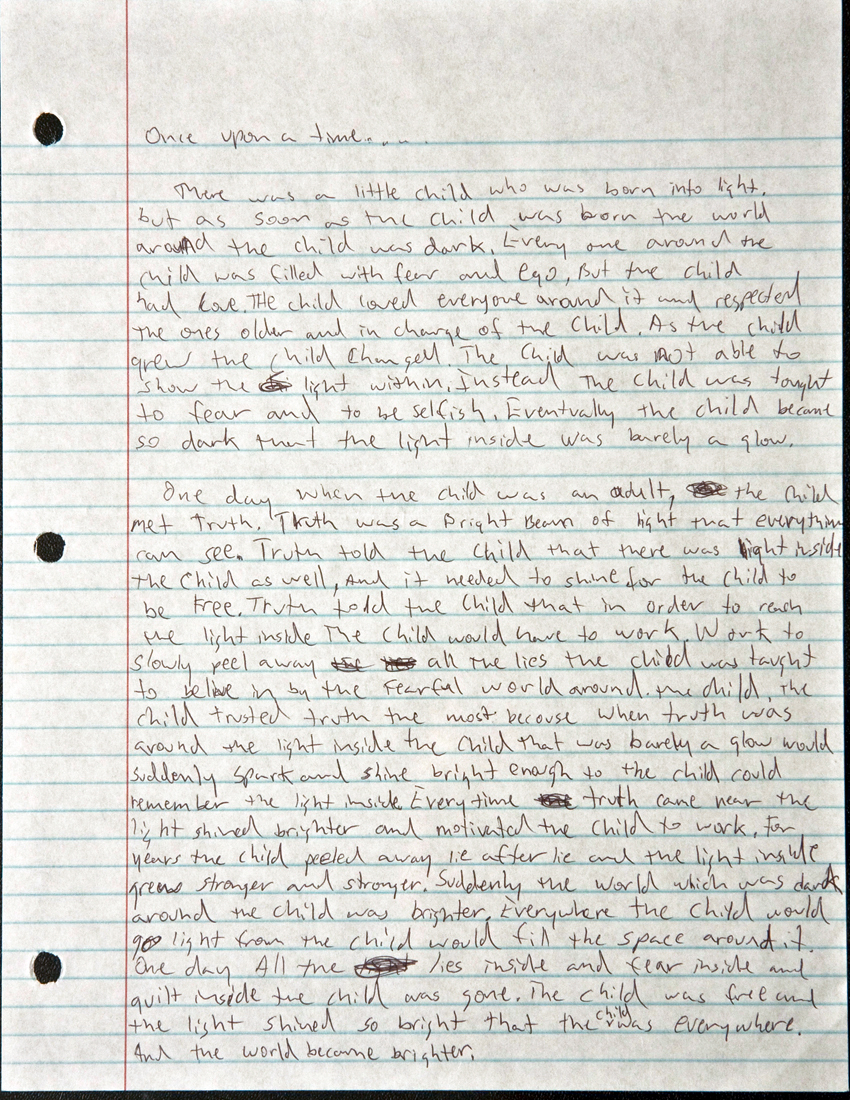 Once upon a time......
There was a little child who was born into light.
but as soon as the child was born the world
around the child was dark. Every one around the
child was filled with fear and ego, But the child
had Love. THe child loved everyone around it and respected
the ones older and in charge of the Child. As the child
grew the child Changed. The Child was Not able to
show the light within. Instead The child was tought
to fear and to be selfish. Eventually the child became
so dark that the light inside was barely a glow.
One day when the child was an adult, the child
met Truth. Truth was a Bright Beam of light that everything
can see. Truth told the Child that there was light inside
the Child as well, And it needed to shine for the child to
be Free. Truth told the Child that in order to reach
the light inside The Child would have to work. Work to
slowly peel away all The lies the child was taught
to belive in by the Fearful world around the child. The
child trusted truth the most becouse when truth was
around the light inside the Child that was barely a glow would
suddenly spark and shine bright enough to the child could
remember the light inside. Every time truth came near the
light shined brighter and motivated the Child to work. For
years the child peeled away lie after lie and the light inside
grew stronger and stronger. Suddenly the world which was dark
around the child was brighter. Everywhere the Child would
go light from the child would fill the space around it.
One day All the lies inside and fear inside and
guilt inside the child was gone. The child was free and
the light shined so bright that the child was everywhere.
And the world became brighter.